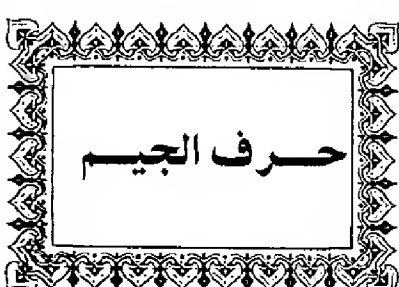 حرف الجيم